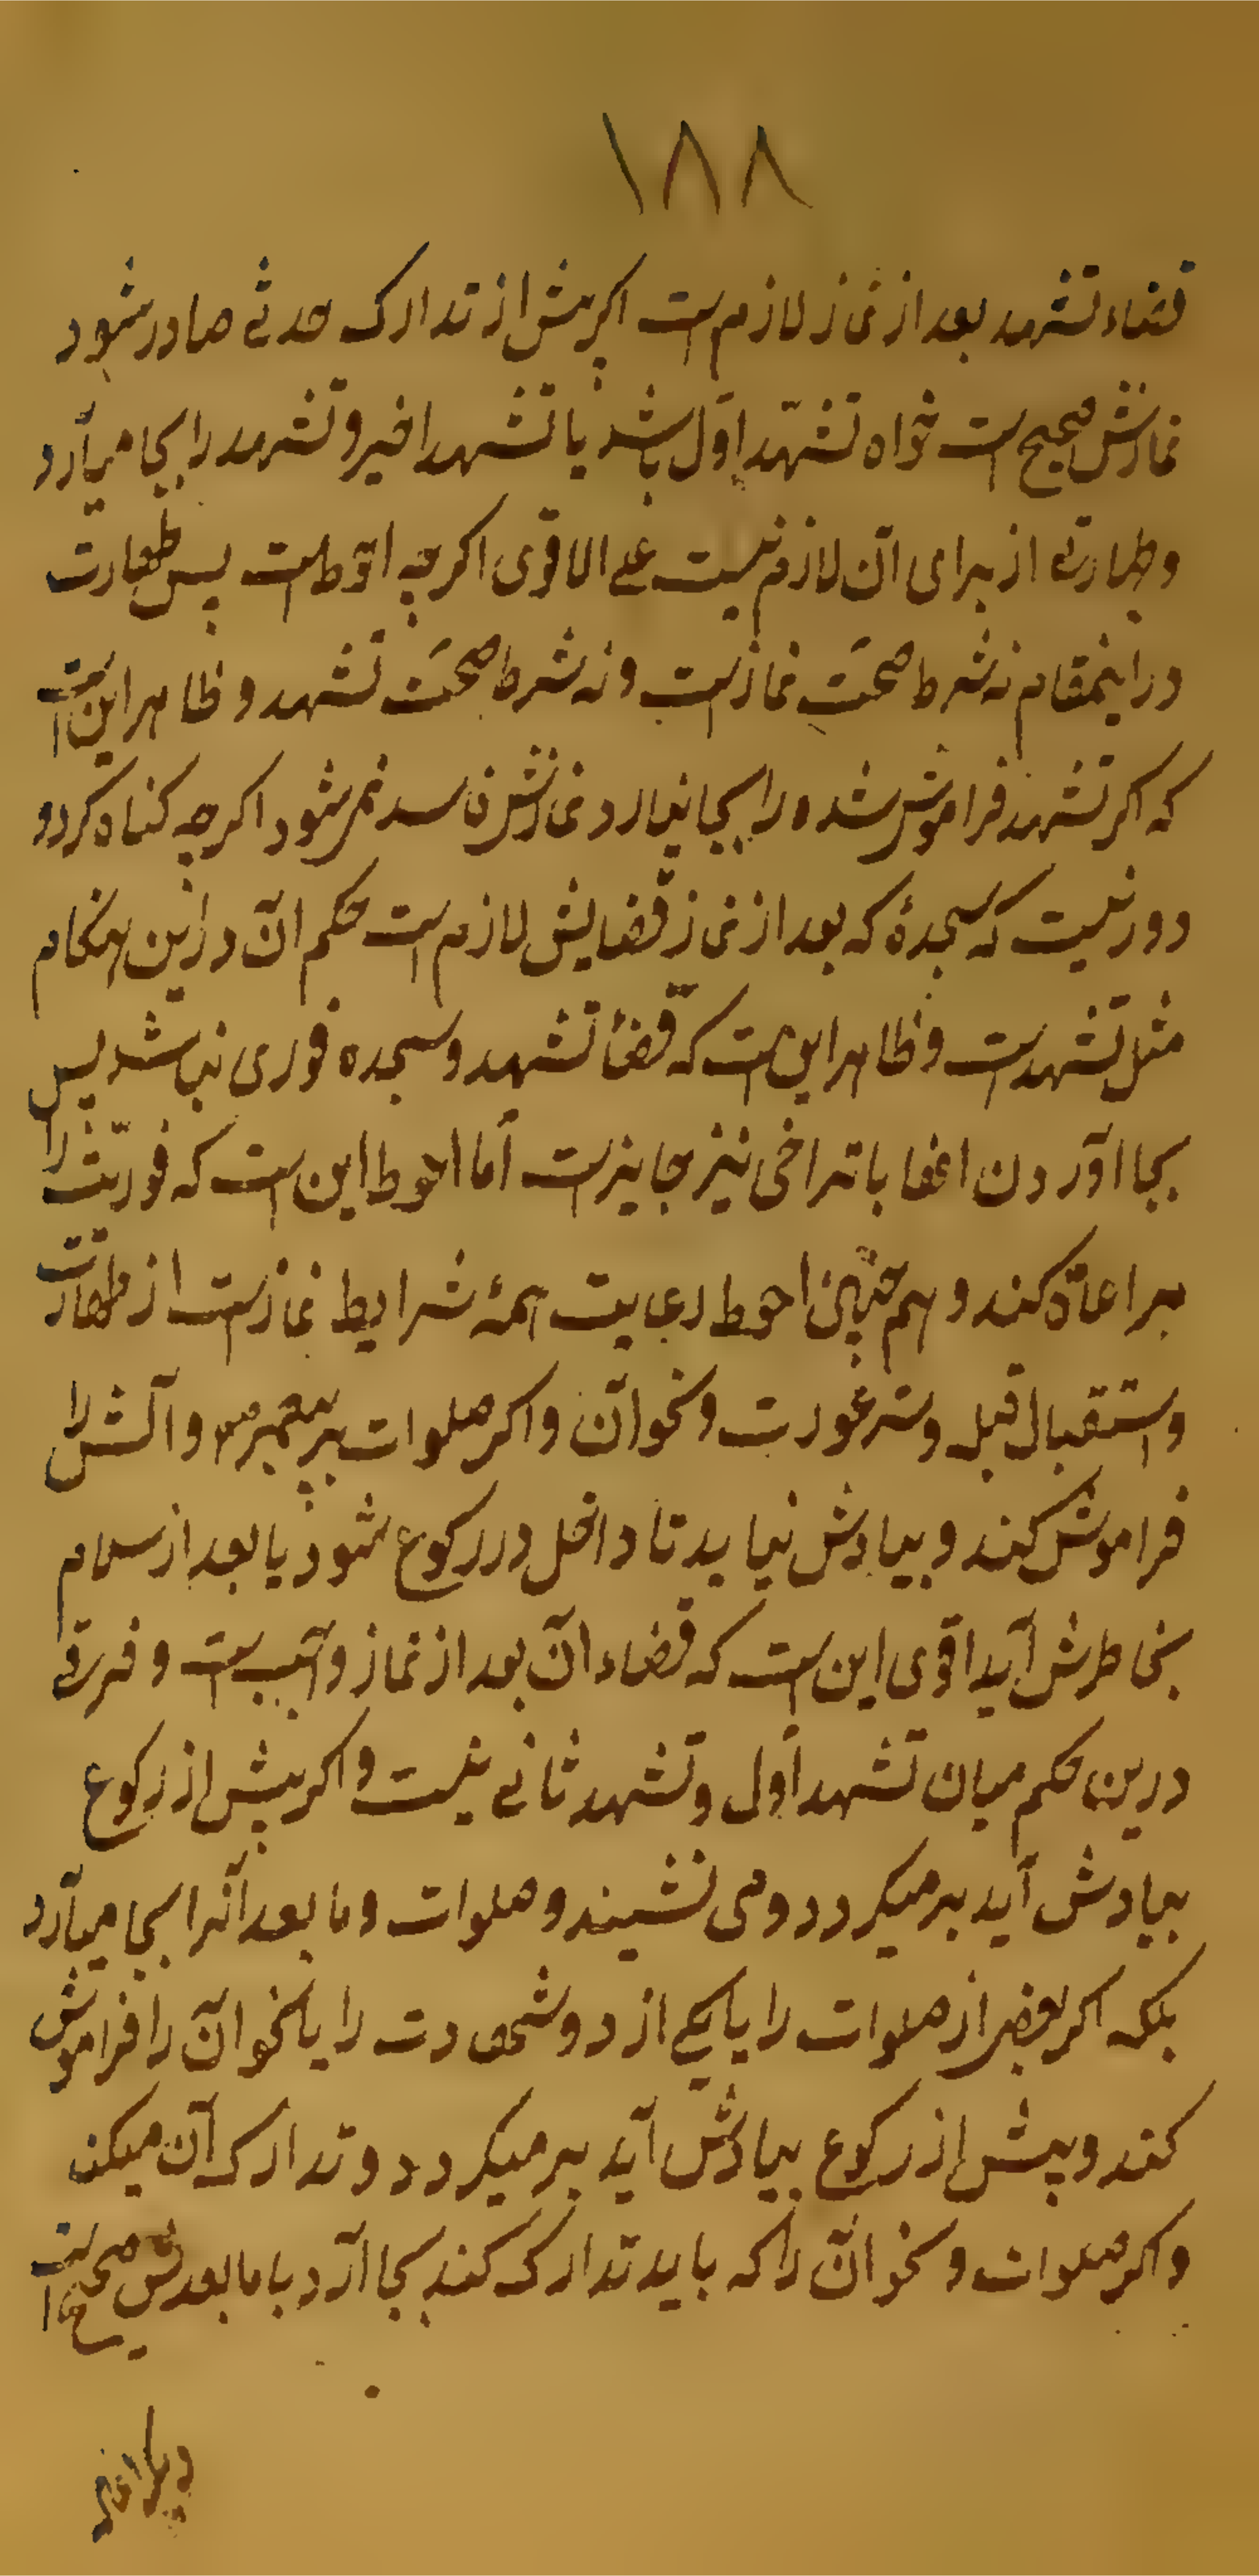 ۱۸۸
قضاء تشهد بعد از نماز لازم است اکر پیش از تدارک حدثی صادر شود
نمازش صحیح است خواه تشهّد اوّل باشد یا تشهد اخیر و تشهد را بجا میآرد
و طهارتی از برای آن لازم نیست علی الاقوی اکرچه احوط است پس طهارت
در اینمقام نه شرط صحّتِ نماز است و نه شرط صحّت تشهد و ظاهر این است
که اکر تشهد فراموش شده را بجا نیارد نمازش فاسد نمیشود اکرچه کناه کرده و
دور نیست که سجدهٔ که بعد از نماز قضایش لازم است حکم آن در این هنکام
مثل تشهد است و ظاهر این است که قضأ تشهد و سجده فوری نباشد پس
بجا آوردن انها با تراخی نیز جایز است اما احوط این است که فوریّت را
مراعاة کند و هم چنین احوط رعایت همهٔ شرایط نماز است از طهارت
و استقبال قبله و ستر عورت و نحو آن و اکر صلوات بر پیغمبر ص و آلش را
فراموش کند و بیادش نیاید تا داخل در رکوع شود یا بعد از سلام
بخاطرش آید اقوی این است که قضاء آن بعد از نماز واجب است و فرقی
درین حکم میان تشهد اول و تشهد ثانی نیست و اکر پیش از رکوع
بیادش آید بر میکردد و می نشیند و صلوات و ما بعد آنرا بجا میآرد
بلکه اکر بعضی از صلوات را یا یکی از دو شهادت را یا نحو آن را فراموش
کند و پیش از رکوع بیادش آید بر میکردد و تدارک آن میکند
و اکر صلوات و نحو آن را که باید تدارک کند بجا آرد با ما بعدش صحیح است